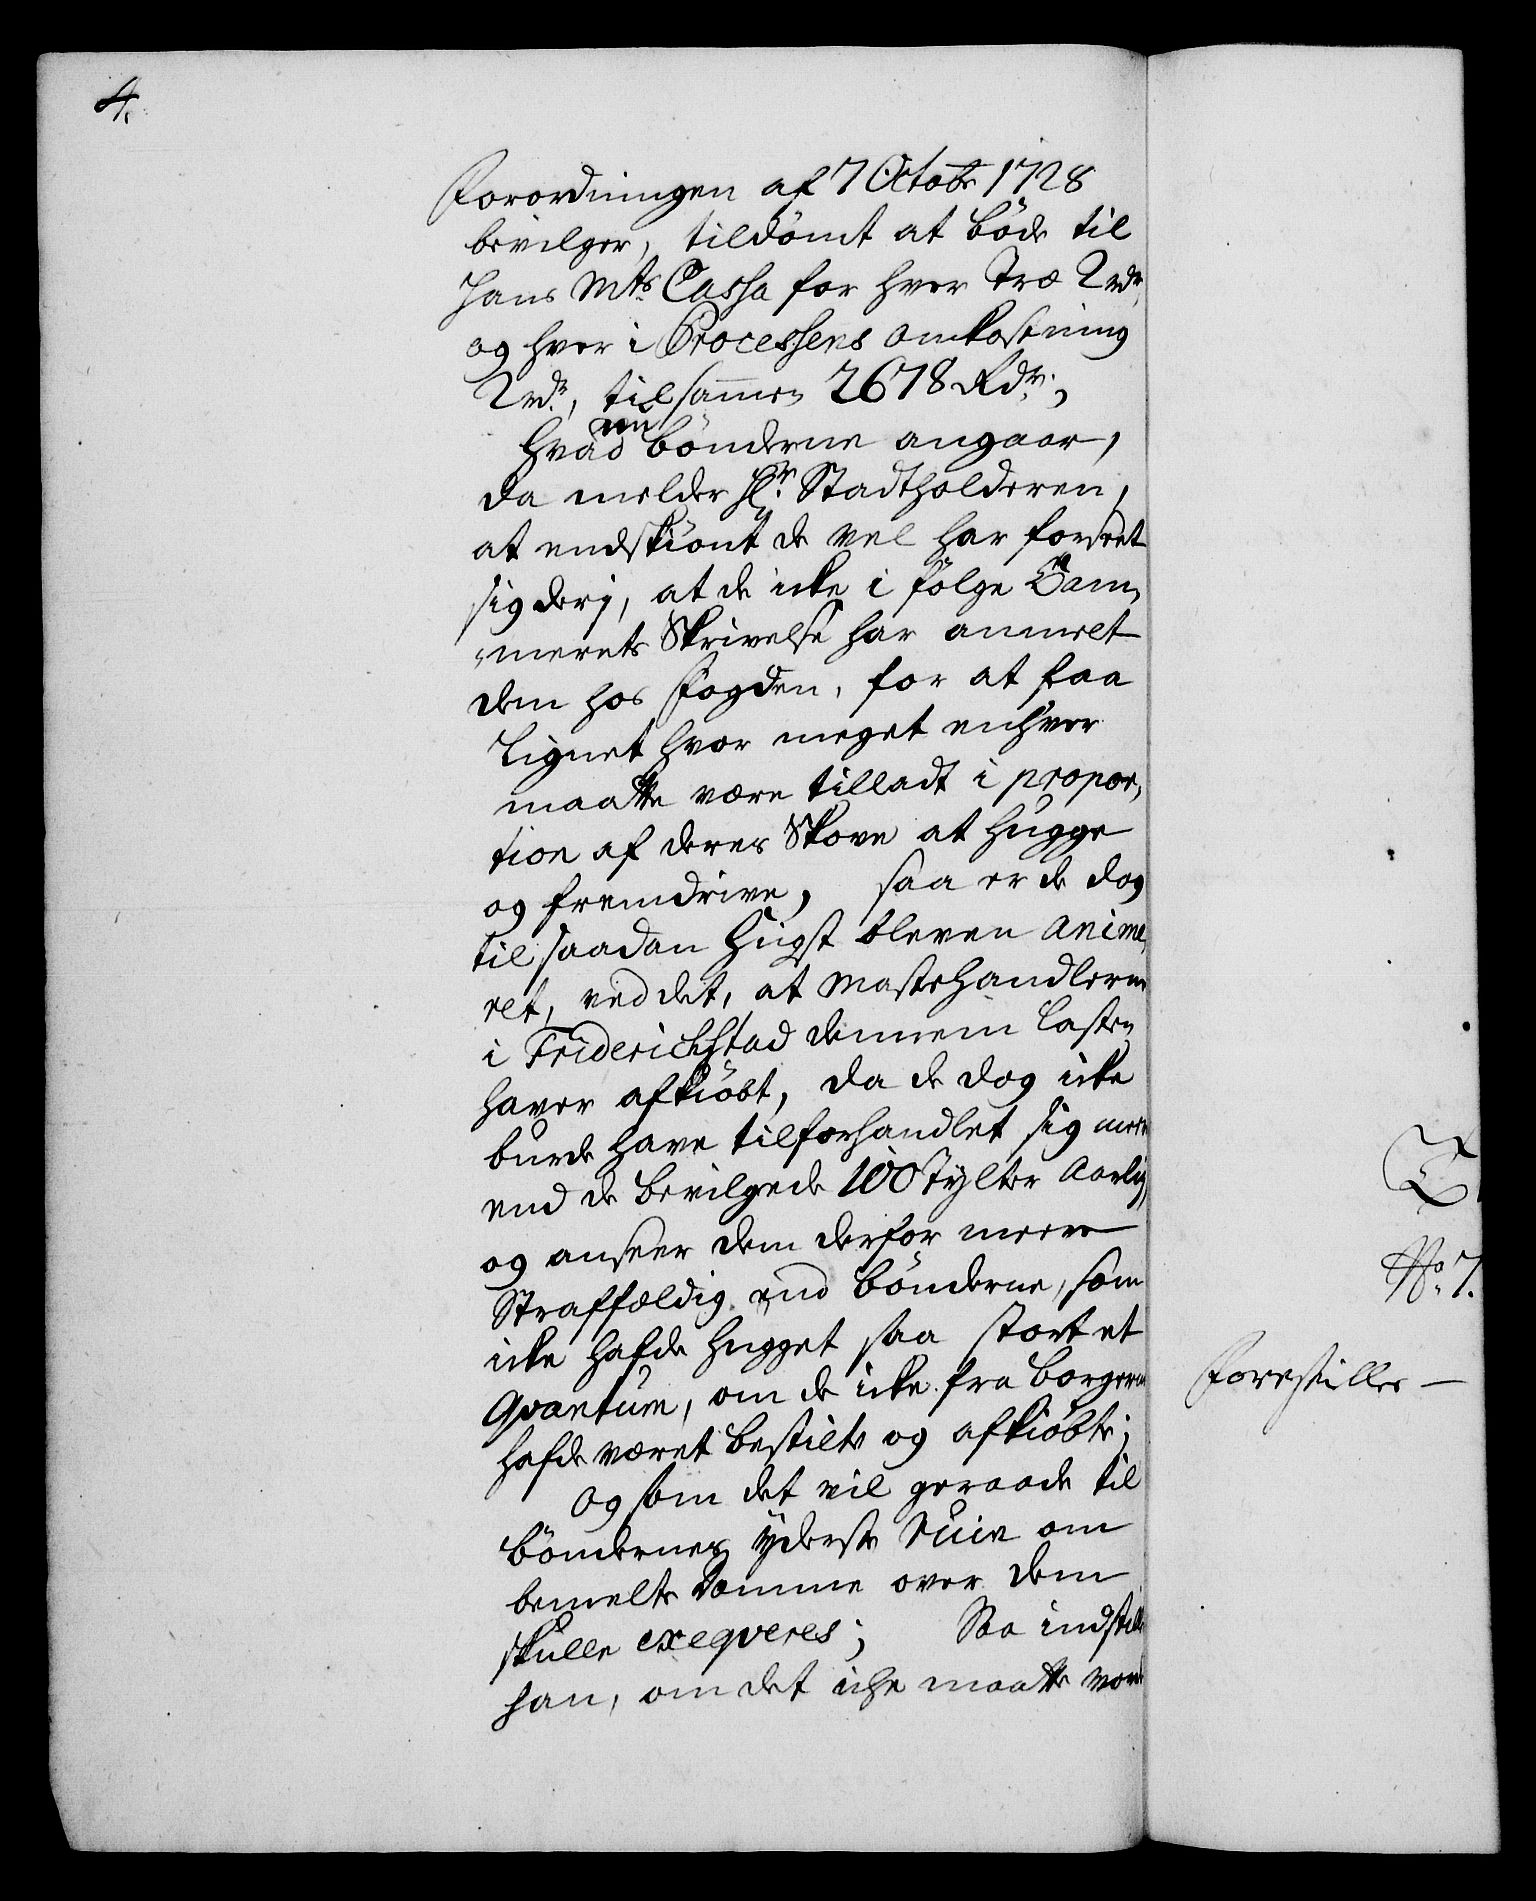 4.
Forordningen af 7 Octobr 1728
bevilger, tildømt at bøde til
Hans Mts Cassa for hver Træ 2 rdr
og hver i Processens Omkostning
2 rdr, tilsammen 2678 Rdr.,
Hvad nu bønderne angaar,
da melder Hr. Stadtholderen,
at endskiönt de vel har forseet
sig derj, at de icke i følge Cam,,
,,merets Skrivelse har anmelt
dem hos Fogden, for at faa
Lignet hvor meget enhver
maatte være tilladt i propor,,
tion af deres Skove at hugge
og fremdrive, saa er de dog
til saadan Hugst bleven anime,,
ret, ved det, at Mastehandlerne
i Friderichstad dennem Lasten
haver afkiöbt, da de dog icke
burde have tilforhandlet sig meere
end de bevilgede 100 Tylter Aarlig,
og anseer dem derfor meere
Straffældig end bønderne, som
icke hafde hugget saa stort et
Qvantum, om de icke fra borgerne
hafde været bestilte og afkiöbte;
Og som det vil geraade til
bøndernes yderste Ruin om
bemelte Domme over dem
skulle exeqveres; Saa indstiller
han, om det icke maatte vorde
No. 7.
Forestilles —